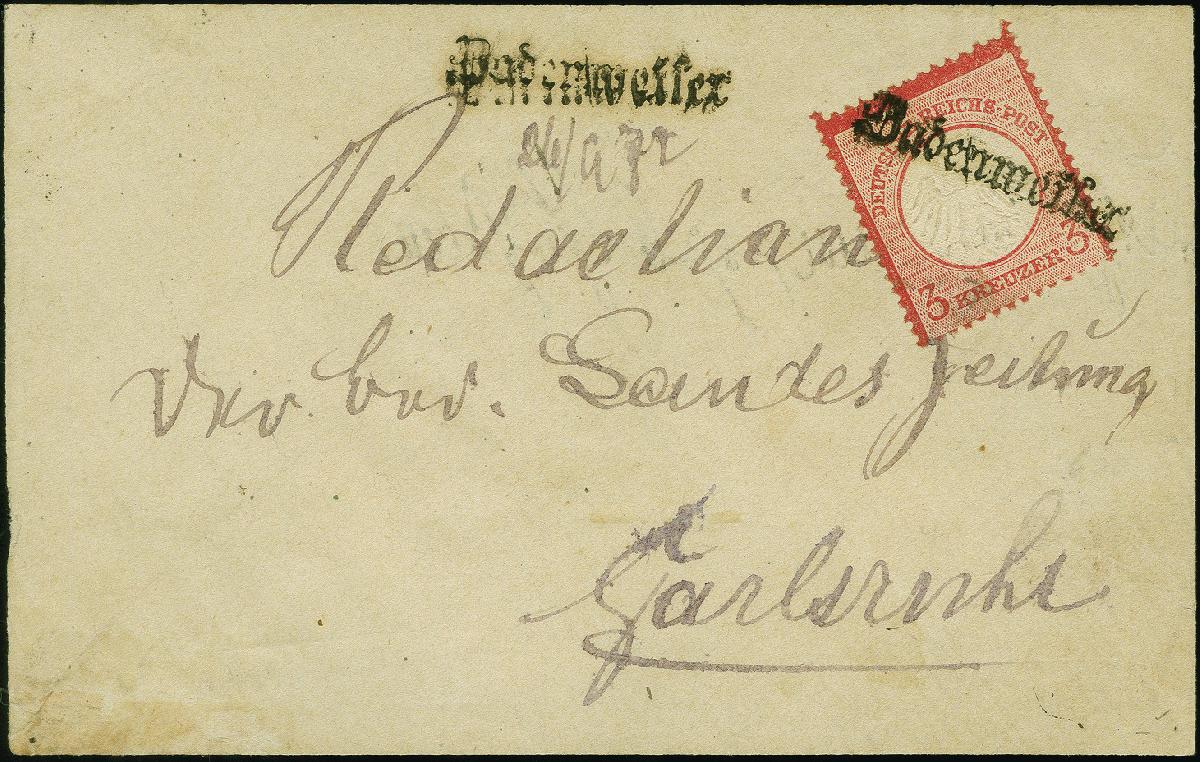 Badenweiler
26/9 72
Redaction
Der bad. Landes Zeitung
Carlsruhe
DEUTSCHE REICHS-POST
3 KREUZER 3
Badenweiler